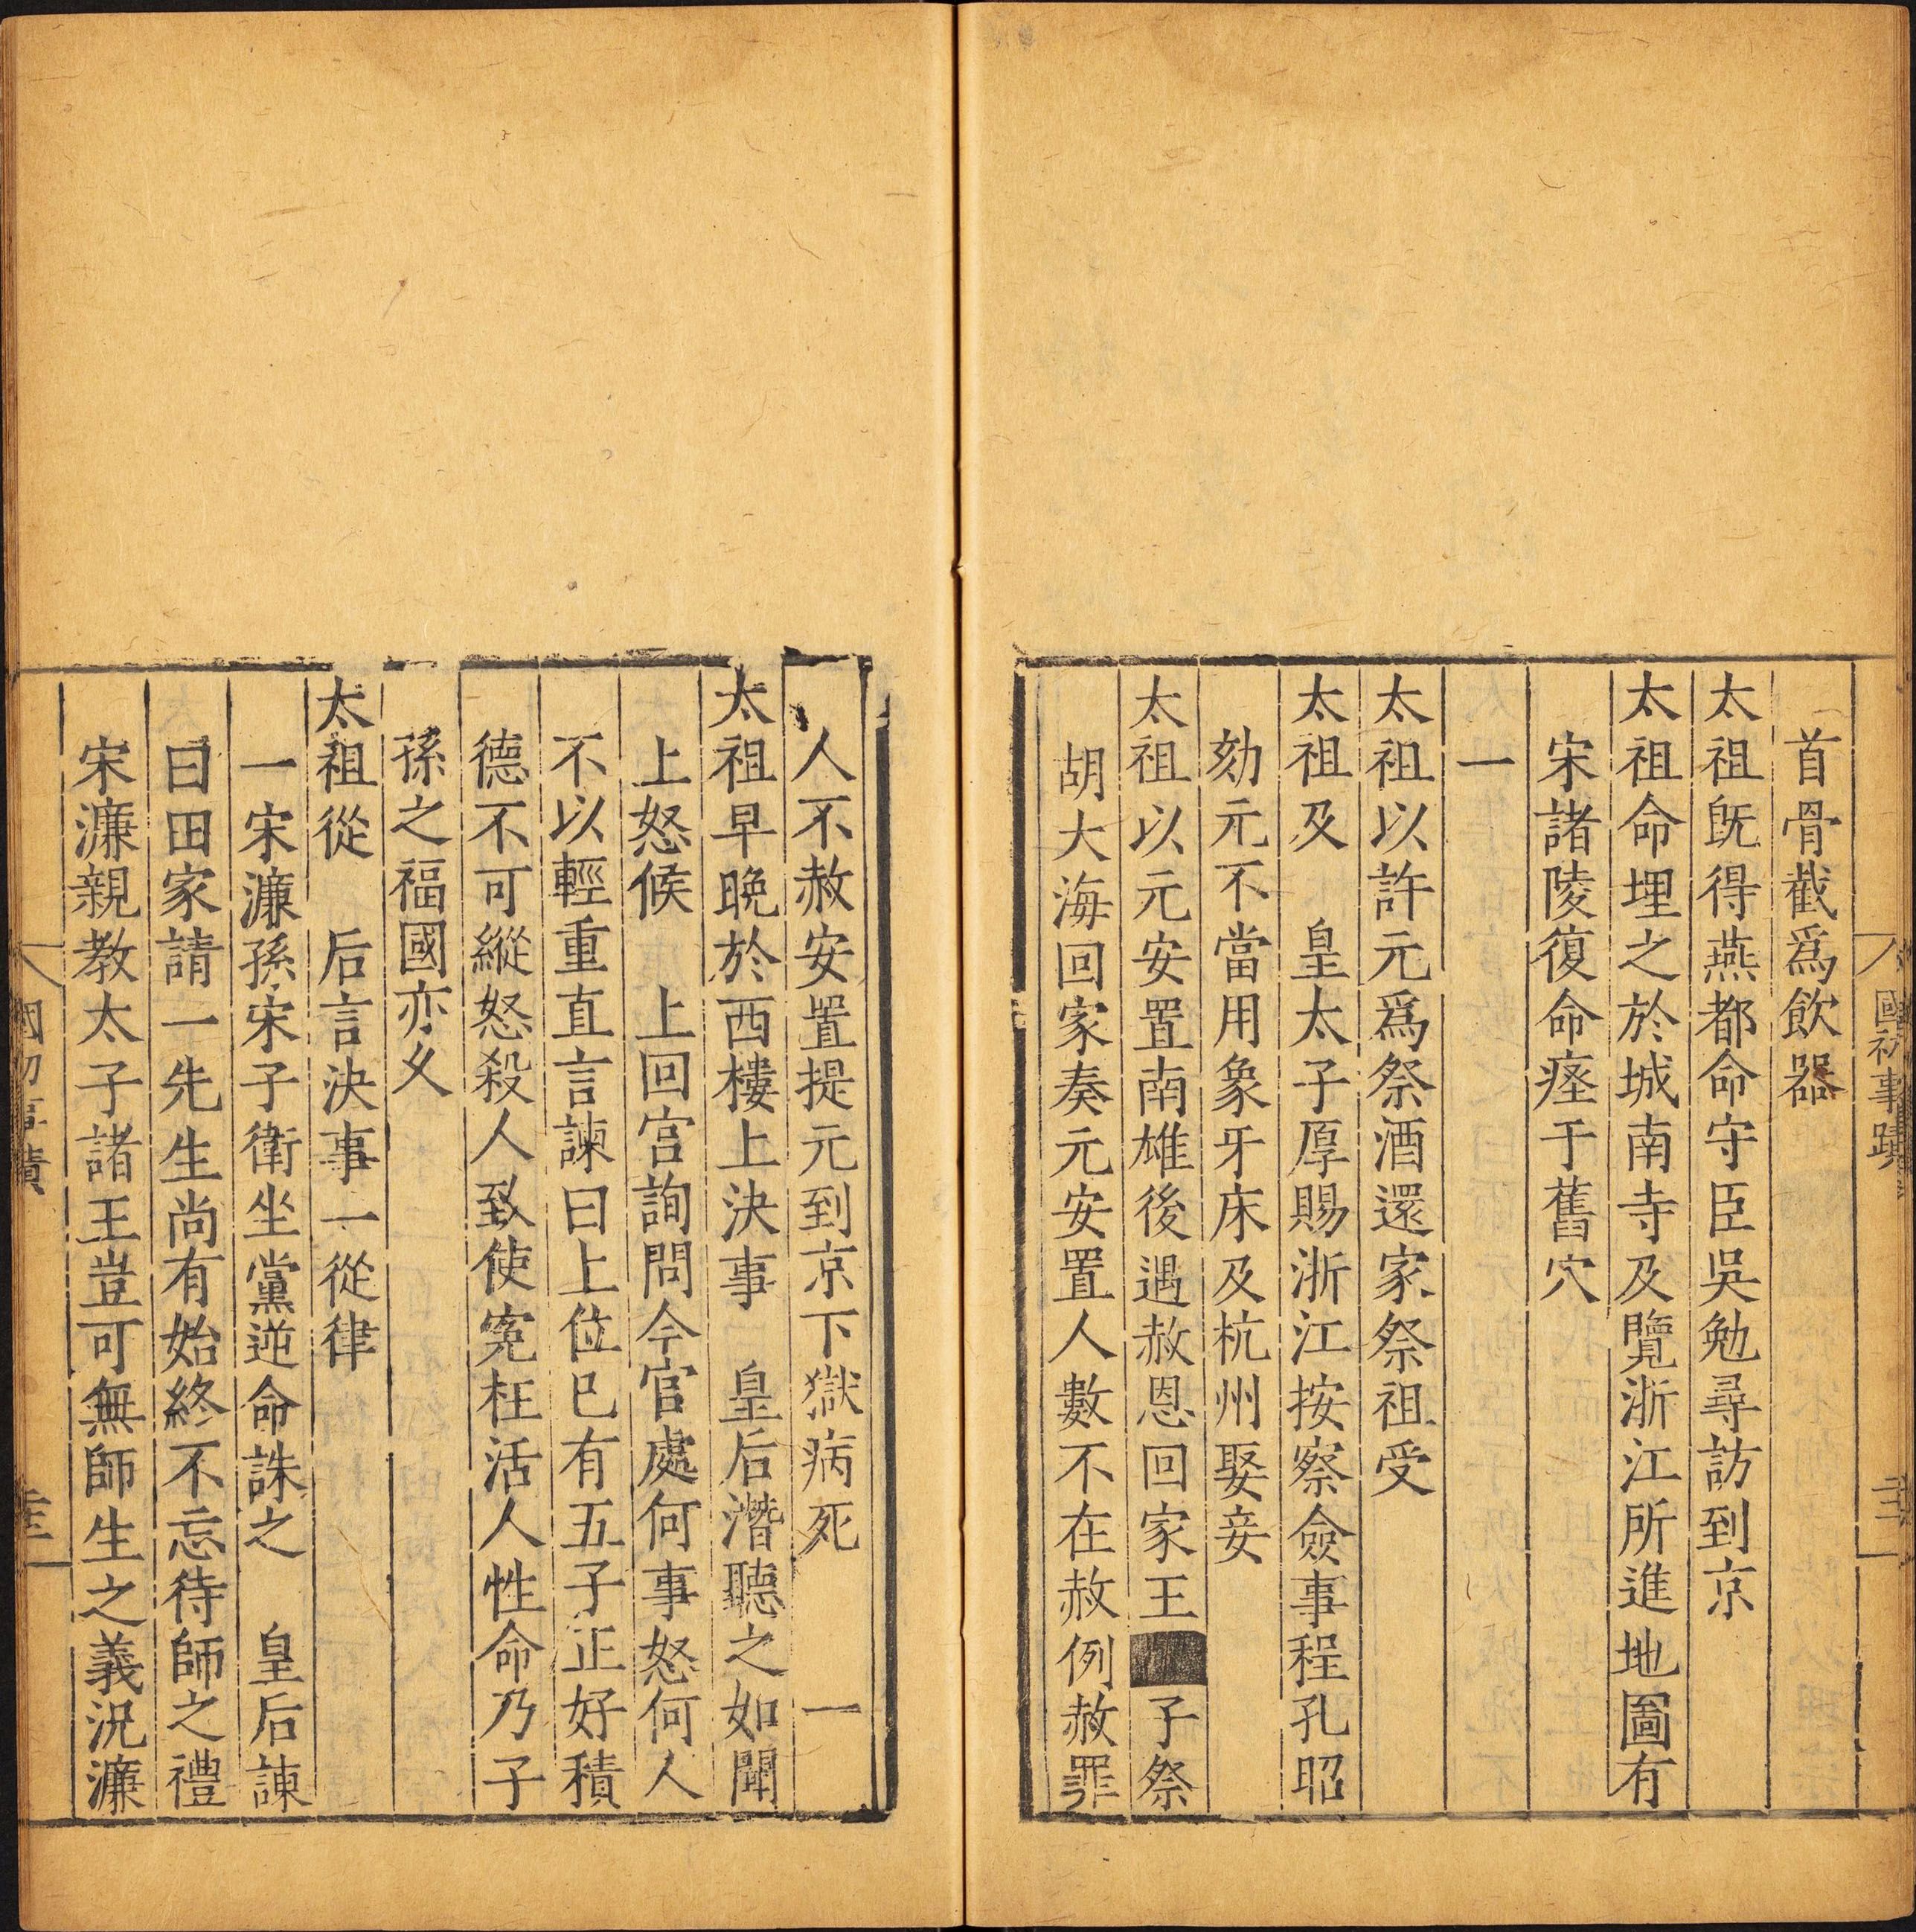 國初事蹟
首骨截爲飲器
太祖旣得燕都命守臣吳勉尋訪到京
太祖命埋之於城南寺及覽浙江所進地圖有
宋諸陵復命瘞于舊穴
一
太祖以許元爲祭酒還家祭祖受
太祖及 皇太子厚賜浙江按察僉事程孔昭
劾元不當用象牙床及杭州娶妾
太祖以元安置南雄後遇赦恩回家王 子祭
胡大海回家奏元安置人數不在赦例赦罪
人不赦安置提元到京下獄病死 一
太祖早晩於西樓上決事 皇后潛聽之如聞
上怒候 上回宮詢問今官處何事怒何人
不以輕重直言諫曰上位巳有五子正好積
德不可縱怒殺人致使寃枉活人性命乃子
孫之福國亦久
太祖從 后言決事一從律
一宋濂孫宋子衛坐黨逆命誅之 皇后諫
曰田家請一先生尚有始終不忘待師之禮
宋濂親教太子諸王豈可無師生之義況濂
國初事蹟